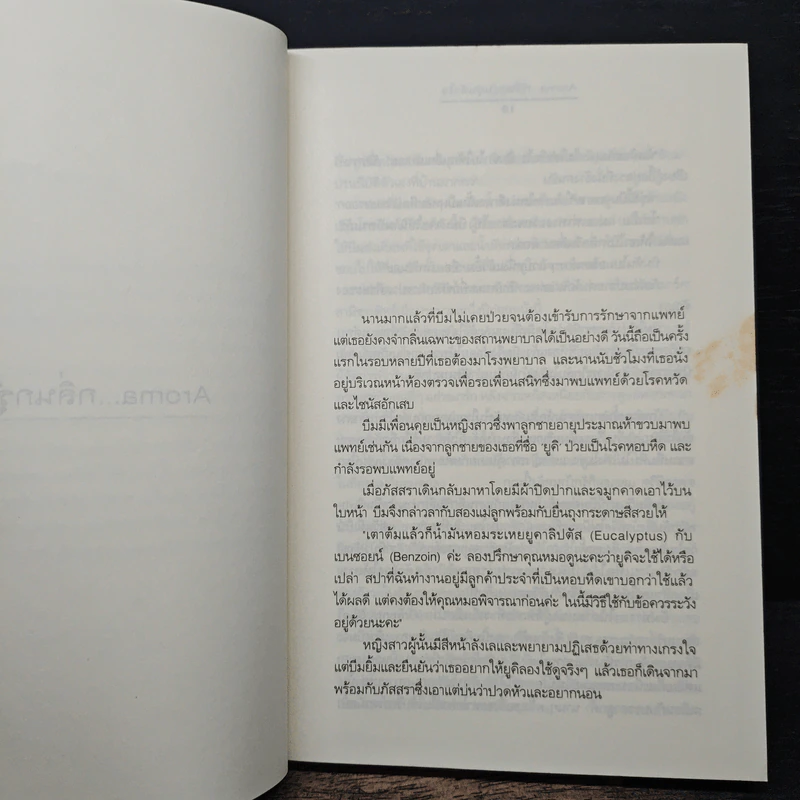 นานมากแล้วที่บีมไม่เคยป่วยจนต้องเข้ารับการรักษาจากแพทย์
แต่เธอยังคงจำกลิ่นเฉพาะของสถานพยาบาลได้เป็นอย่างดี วันนี้ถือเป็นครั้ง
แรกในรอบหลายปีที่เธอต้องมาโรงพยาบาล และนานนับชั่วโมงที่เธอนั่ง
อยู่บริเวณหน้าห้องตรวจเพื่อรอเพื่อนสนิทซึ่งมาพบแพทย์ด้วยโรคหวัด
และไซนัสอักเสบ
บีมมีเพื่อนคุยเป็นหญิงสาวซึ่งพาลูกชายอายุประมาณห้าขวบมาพบ
แพทย์เช่นกัน เนื่องจากลูกชายของเธอที่ชื่อ 'ยูคิ' ป่วยเป็นโรคหอบหืด และ
กำลังรอพบแพทย์อยู่
เมื่อภัสสราเดินกลับมาหาโดยมีผ้าปิดปากและจมูกคาดเอาไว้บน
ใบหน้า บีมจึงกล่าวลากับสองแม่ลูกพร้อมกับยื่นถุงกระดาษสีสวยให้
"เตาต้มแล้วก็น้ำมันหอมระเหยยูคาลิปตัส (Eucalyptus) กับ
เบนซอยน์ (Benzoin) ค่ะ ลองปรึกษาคุณหมอดูนะคะว่ายูคิจะใช้ได้หรือ
เปล่า สปาที่ฉันทำงานอยู่มีลูกค้าประจำที่เป็นหอบหืดเขาบอกว่าใช้แล้ว
ได้ผลดี แต่คงต้องให้คุณหมอพิจารณาก่อนค่ะ ในนี้มีวิธีใช้กับข้อควรระวัง
อยู่ด้วยนะคะ"
หญิงสาวผู้นั้นมีสีหน้าลังเลและพยายามปฏิเสธด้วยท่าทางเกรงใจ
แต่บีมยิ้มและยืนยันว่าเธออยากให้ยูคิลองใช้ดูจริงๆ แล้วเธอก็เดินจากมา
พร้อมกับภัสสราซึ่งเอาแต่บ่นว่าปวดหัวและอยากนอน